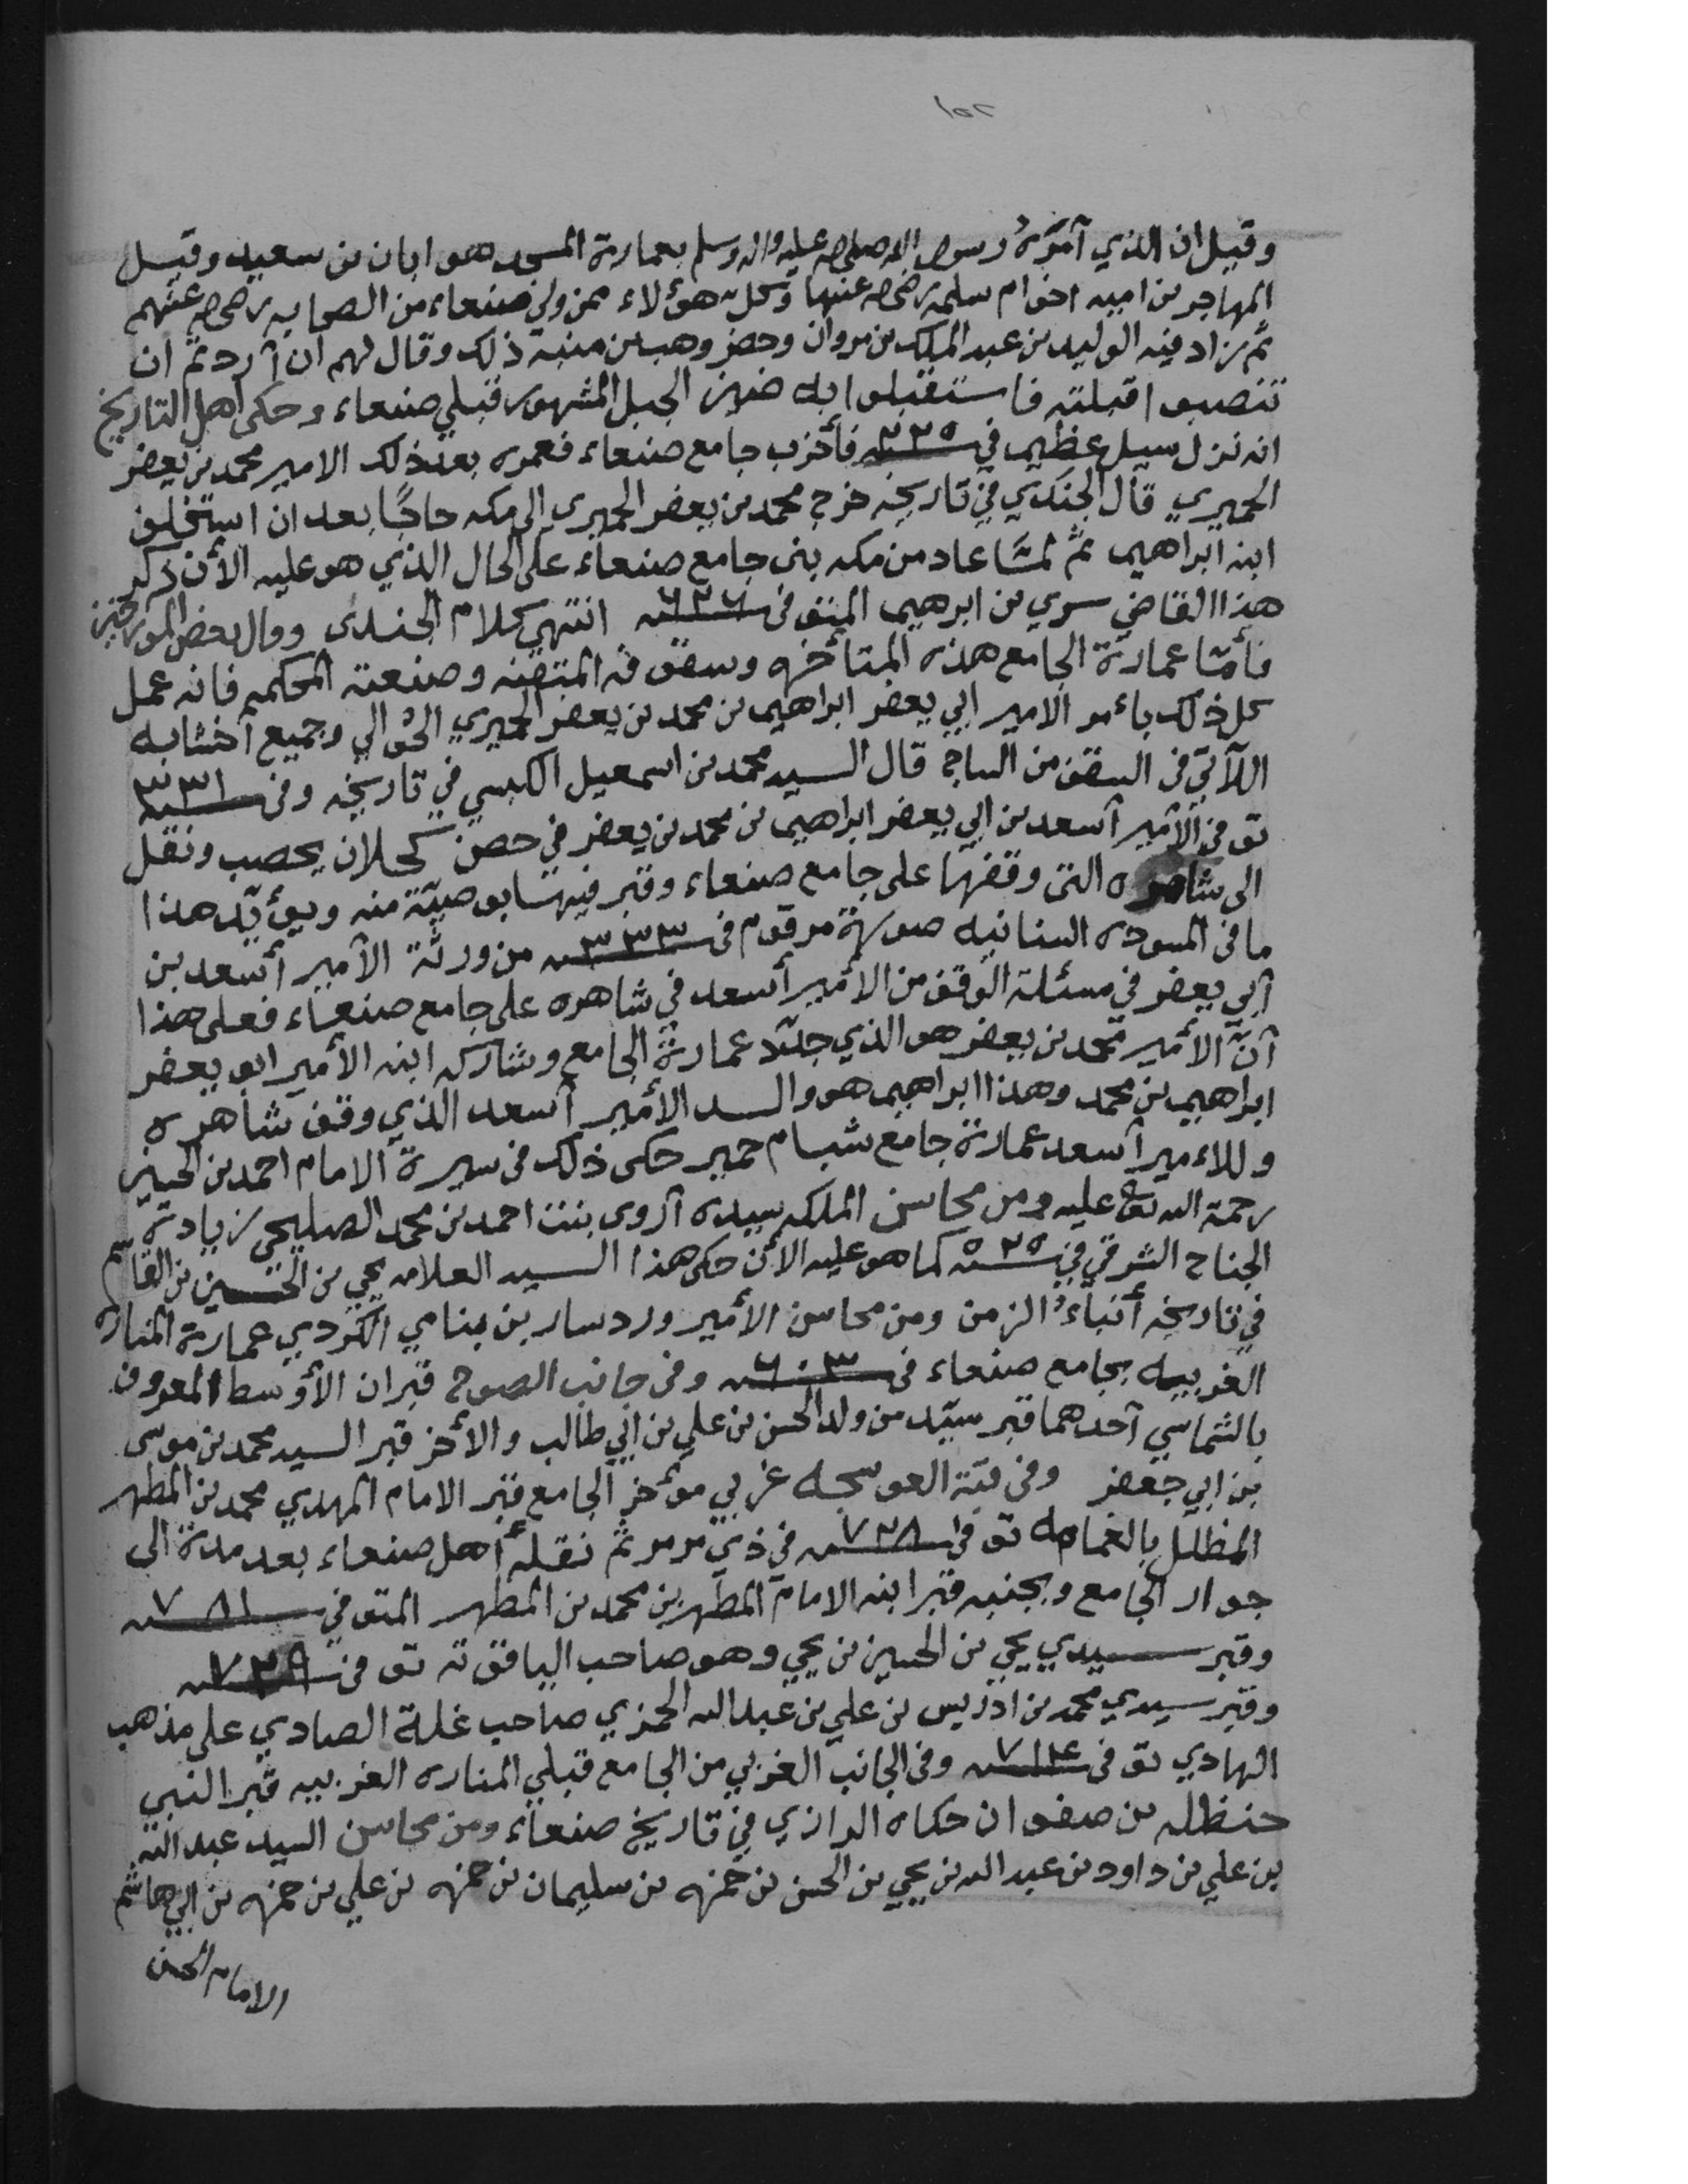 ١٥٢
وقيل ان الذي آمَرَهُ رسول الله صلى الله عليه واله وسلم بعمارة المسجد هو ابان بن سعيد وقيل
المهاجر بن اميه اخو ام سلمه رضي الله عنها وكل هؤلاء ممن ولي صنعاء من الصحابه رضي الله عنهم
ثم زاد فيه الوليد بن عبد الملك بن مروان وحضر وهب بن منبه ذلك وقال لهم ان آردتم ان
تنصبوا قبلته فاستقبلوا به ضين الجبل المشهور قبلي صنعاء وحكى اهل التاريخ
انه نزل سيل عظيم في سنه فأخرب جامع صنعاء فعمره بعد ذلك الامير محمد بن يعفر
الحميري قال الجندي في تاريخه خرج محمد بن يعفر الحميرى الى مكه حاجًا بعد ان استخلف
ابنه ابراهيم ثم لمّا عاد من مكه بنى جامع صنعاء على الحال الذي هو عليه الأن ذكر
هذا القاضي سري بن ابرهيم المتوفى ٦٢٦ سنه انتهى كلام الجندى وقال بعض المورخين
فأمّا عمارة الجامع هذه المتأخره وسقوفه المتقنه وصنعته المحكمه فانه عمل
كل ذلك بأمر الامير ابي يعفر ابراهيم بن محمد بن يعفر الحميري الحُوالي وجميع آخشابه
اللآتي في السقف من الساج قال السيد محمد بن اسمعيل الكبسي في تاريخه وفي ٣٣١ سنه
توفي الأمير آسعد بن ابي يعفر ابراهيم بن محمد بن يعفر في حصن كحلان يحصب ونقل
الى شاهره التي وقفها على جامع صنعاء وقبر فيها بوصيّة منه ويؤيّد هذا
ما في المسوده السنانيه صورة مرقوم في ٣٣٣ سنه من ورثة الأمير أسعد بن
آبي يعفر في مسئلة الوقف من الأمير أسعد في شاهره على جامع صنعاء فعلى هذا
آنّ الأمير محمد بن يعفر هو الذي جدّد عمارة الجامع وشاركه ابنه الأمير ابو يعفر
ابراهيم بن محمد وهذا ابراهيم هو والد الأمير آسعد الذي وقف شاهره
وللاءمير آسعد عمارة جامع شبام حمير حكى ذلك في سيرة الامام احمد بن الحسين
رحمة الله تعالى عليه ومن محاسن الملكه سيده آروى بنت احمد بن محمد الصليحي زيادة
الجناح الشرقي في ٥٢٥ سنه كما هو عليه الأن حكى هذا السيد العلامه يحيى بن الحسين بن القاسم
في تاريخه أنباءُ الزمن ومن محاسن الأمير وردسار بن بنامي الكردي عمارة المناره
الغربيه بجامع صنعاء في ٦٠٣ سنه وفي جانب الصوح قبران الأوسط المعروف
بالشماسي آحدهما قبر سيّد من ولد الحسن بن علي بن ابي طالب والأخر قبر السيد محمد بن موسى
بن ابي جعفر وفي قبّة العوسجه غربي مؤخر الجامع قبر الامام المهدي محمد بن المطهر
المظلل بالغمامه توفي ٧٢٨ سنه في ذي مرمر ثم نقله أهل صنعاء بعد مدة الى
جوار الجامع وبجنبه قبر ابنه الامام المطهر بن محمد بن المطهر المتوفي ٧٨١ سنه
وقبر سيدي يحيى بن الحسين بن يحيى وهو صاحب الياقوته توفي ٧٢٩ سنه
وقبر سيدي محمد بن ادريس بن علي بن عبدالله الحمزي صاحب غلة الصادي على مذهب
الهادي توفي ٧١٤ سنه وفي الجانب الغربي من الجامع قبلي المناره الغربيه قبر النبي
حنظله بن صفوان حكاه الرازي في تاريخ صنعاء ومن محاسن السيد عبدالله
بن علي بن داود بن عبدالله بن يحيى بن الحسن بن حمزه بن سليمان بن حمزه بن علي بن حمزه بن ابي هاشم
الامام الحسن